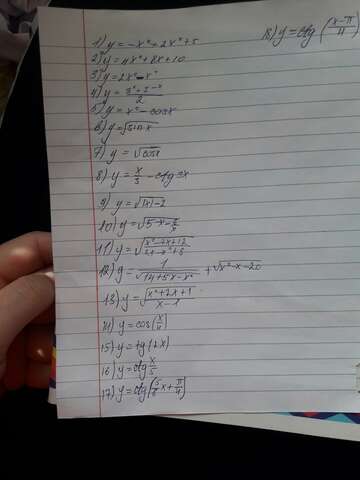 1) y = -x⁴ + 2x² + 5
2) y = 4x² + 8x + 10
3) y = 2x² - x⁴
4) y = (3ˣ + 3⁻ˣ)/2
5) y = x² - cosx
6) y = √sin x
7) y = √cosx
8) y = x/3 - ctg 3x
9) y = √|x| - 2
10) y =
11) y =
12) y = 1/√14+5x-x² + √x²-x-20
13) y = √(x²+2x+1)/(x-1)
14) y = cos(x/4)
15) y = tg(2x)
16) y = ctg x/5
17) y = ctg
18) y = ctg (